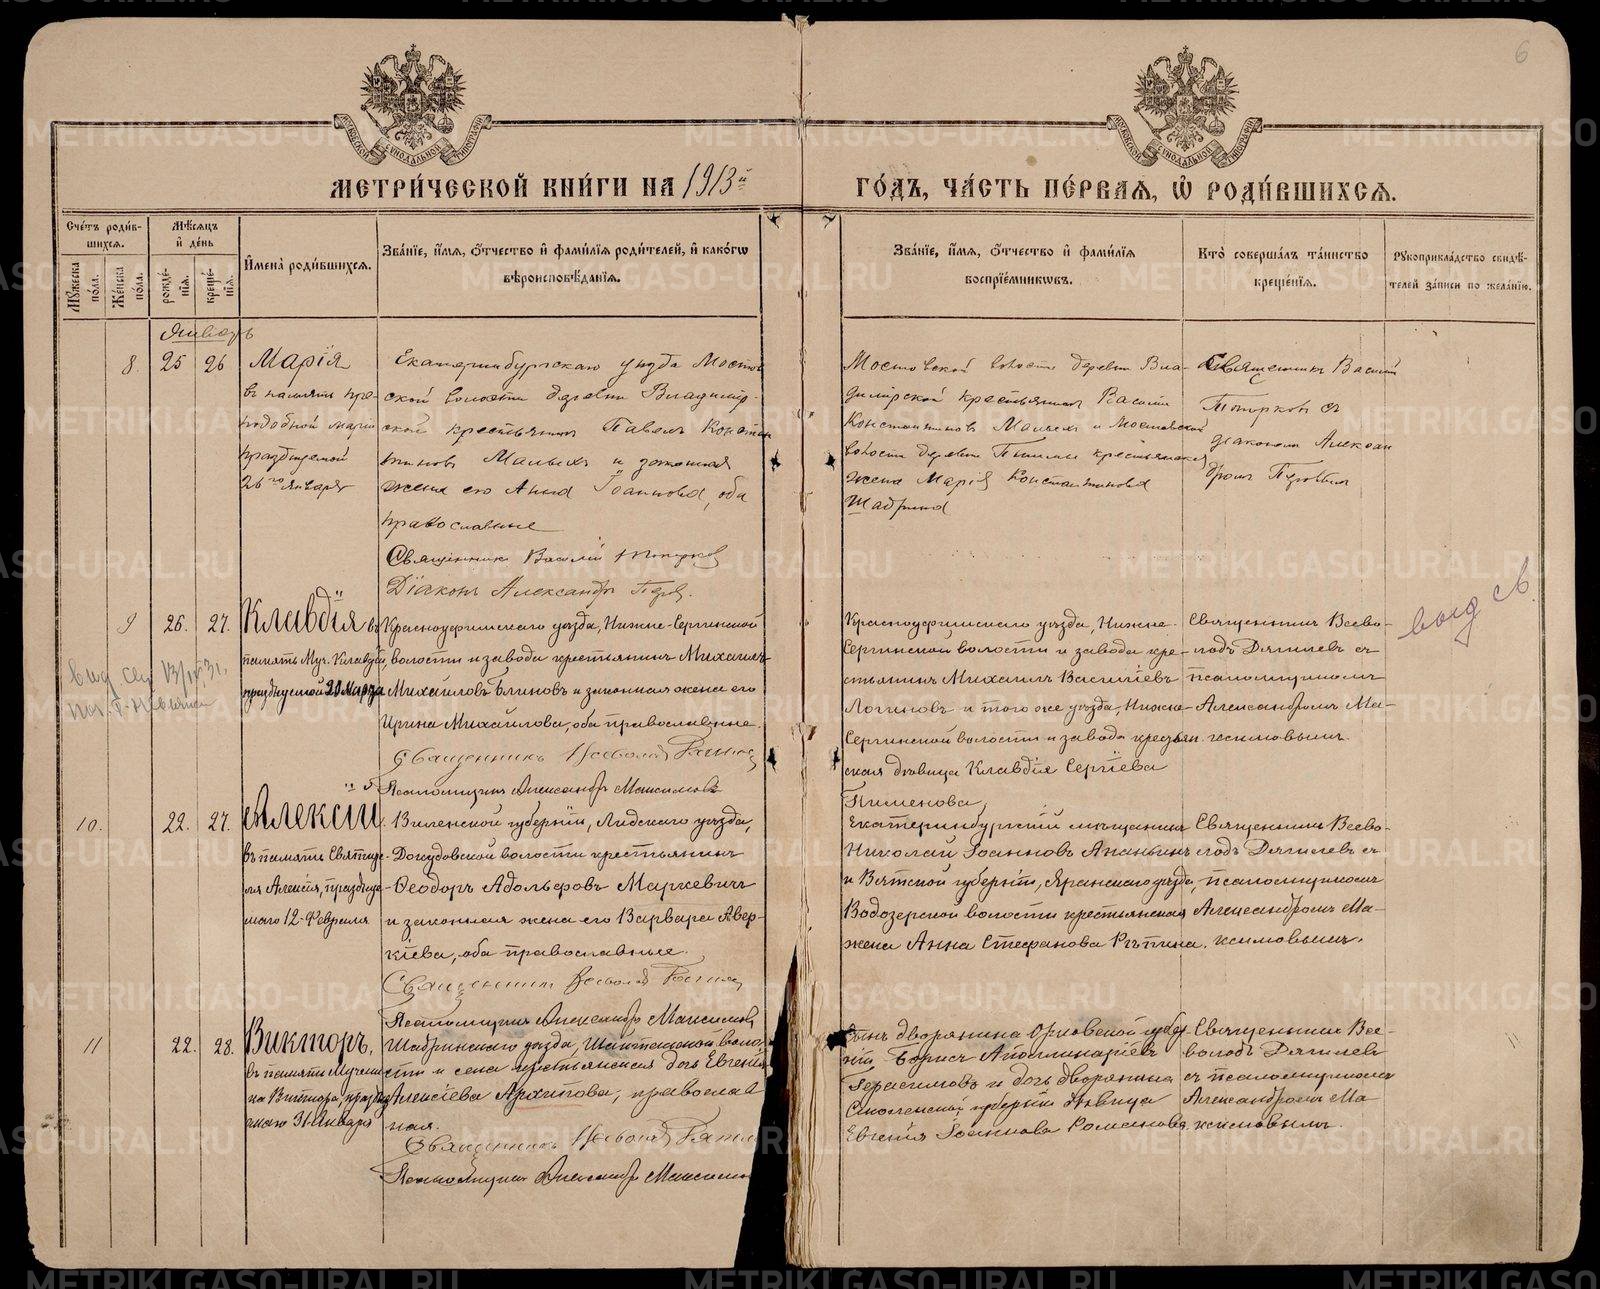 6
МОСКОВСКОЙ СѴНОДАЛЬНОЙ ТИПОГРАФІИ
МОСКОВСКОЙ СѴНОДАЛЬНОЙ ТИПОГРАФІИ
МЕТРИ́ЧЕСКОЙ КНИ́ГИ НА 1913й
ГО́ДЪ, ЧА́СТЬ ПЕ́РВАѦ, Ѽ РОДИ́ВШИХСѦ.
Сче́тъ роди́в-
шихсѧ.
Мꙋ́жеска по́ла.
Же́нска по́ла.
Мѣ́сѧцъ
и҆ де́нь
рожде́-
нїѧ.
креще́-
нїѧ.
И҆мена̀ роди́вшихсѧ.
Зва́нїе, и҆́мѧ, ѻ҆́тчество и҆ фами́лїѧ роди́телей, и҆ како́гѡ
вѣроисповѣ́данїѧ.
Зва́нїе, и҆́мѧ, ѻ҆́тчество и҆ фами́лїѧ
воспрїе́мникѡвъ.
Кто̀ соверша́лъ та́инство
креще́нїѧ.
Рꙋкоприкла́дство свидѣ́-
телей за́писи по жела́нїю.
Январь
8. 25 26
Марія
въ память пре-
подобной Маріи
празднуемой
26го Января
Екатеринбургскаго уѣзда Мостов
ской волости деревни Владимир-
ской крестьянинъ Павелъ Констан
тиновъ Малыхъ и законная
жена его Анна Іоаннова, оба
православные
Священникъ Василій Топорковъ
Діаконъ Александръ Перов.
Мостовской волости деревни Вла-
димірской крестьянинъ Василій
Константиновъ Малыхъ и Мостовской
волости деревни крестьянская
жена Марія Константинова
Шадрина
Священникъ Василій
Топорковъ съ
діакономъ Алексан
дромъ
9 26. 27.
Клавдія въ
память Муч. Клавдіи,
празднуемой 20 Марта
Красноуфимскаго уѣзда, Нижне-Сергинской
волости и завода крестьянинъ Михаилъ
Михайловъ Блиновъ и законная жена его
Ирина Михайлова, оба православные.
Священникъ Всеволодъ Дягилевъ
Псаломщикъ Александръ Максимовъ
Красноуфимскаго уѣзда, Нижне-
Сергинской волости и завода кре-
стьянинъ Михаилъ Василіевъ
Логиновъ и того же уѣзда, Нижне-
Сергинской волости и завода крестьян
ская дѣвица Клавдія Сергіева
Пименова,
Священникъ Всево-
лодъ Дягилевъ съ
псаломщикомъ
Александромъ Ма-
ксимовымъ.
выд св.
выд св 13/IV 31,
10. 22. 27.
Алексій
въ память Святите-
ля Алексія, праздну-
маго 12-Февраля
Виленской губерніи, Лидскаго уѣзда,
Докудовской волости крестьянинъ
Ѳеодоръ Адольфовъ Маркевичъ
и законная жена его Варвара Авер-
кіева, оба православные.
Священникъ Всеволодъ Дягилев
Псаломщикъ Александръ Максимовъ
Екатеринбургскій мѣщанинъ
Николай Іоанновъ Ананьинъ
и Вятской губерніи, Яранскаго уѣзда,
Водозерской волости крестьянская
жена Анна Стефанова Рѣпина.
Священникъ Всево-
лодъ Дягилевъ съ
псаломщикомъ
Александромъ Ма-
ксимовымъ.
11 22. 28.
Викторъ,
въ память мучени
ка Виктора, праздну
маго 31 Января
Шадринскаго уѣзда, воло-
сти и села крестьянская дочь Евгенія
Алексіева Архипова, православ
ная.
Священникъ Всеволодъ Дягил
Псаломщикъ Александръ Максимов
Сынъ дворянина Орловской губер
ніи Борисъ Аполлинаріевъ
Герасимовъ и дочь дворянина
Смоленской губерніи дѣвица
Евгенія Іоаннова Романова.
Священникъ Все-
володъ Дягилевъ
съ псаломщикомъ
Александромъ Ма
ксимовымъ.
METRIKI.GASO-URAL.RU